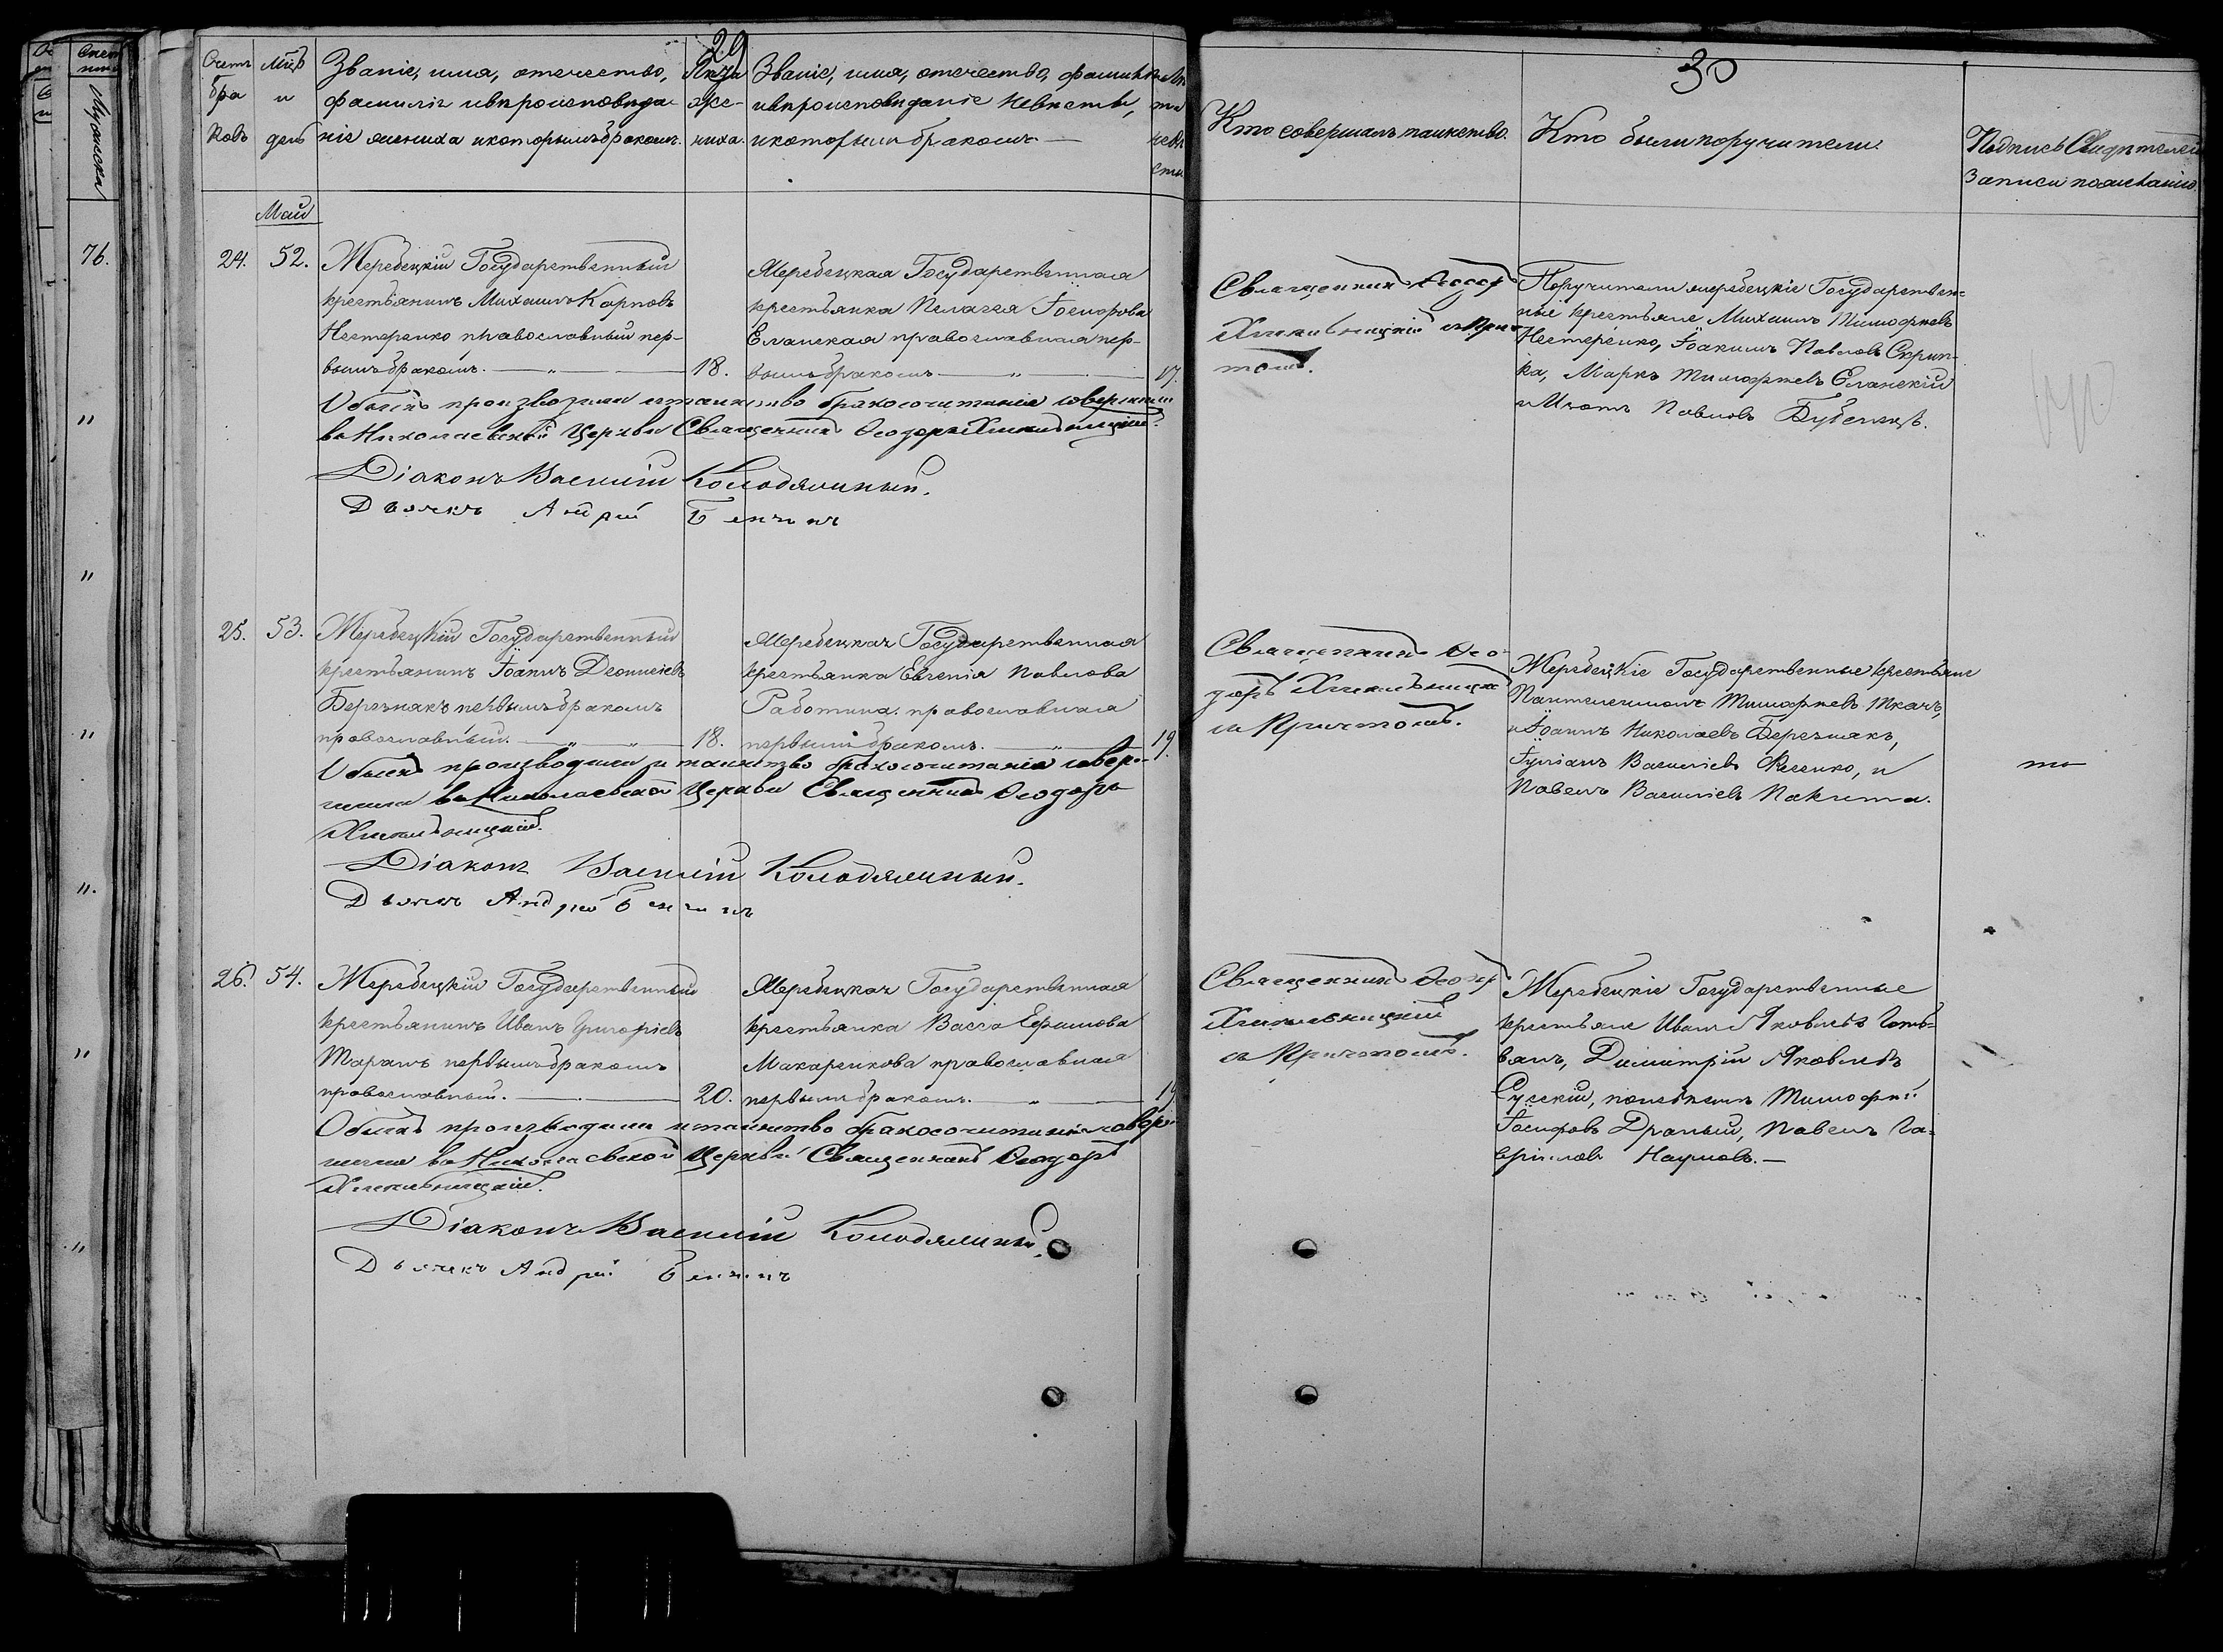 29
Счетъ бра ковъ
Мцъ и день
Званіе, имя, отечество,
фамилія и вѣроисповѣда-
ніе жениха и которымъ бракомъ.
Лѣта же- ниха.
Званіе, имя, отечество, фамилія
и вѣроисповѣданіе невѣсты,
и которымъ бракомъ. —
76.
Май
24. 52.
Жеребецкій Государственный
крестьянинъ Михаилъ Карповъ
Нестеренко православный пер-
вымъ бракомъ. — „ — 18.
Жеребецкая Государственная
крестьянка Пелагея
Еланская православная пер-
вымъ бракомъ — „ — 17.
Обыскъ производили и таинство бракосочитанія совершили
въ Николаевской Церкви Священникъ Ѳеодоръ Хмельницкій.
Діаконъ Василій Колодяжный.
Дьячекъ Андрей
25. 53.
Жеребецкій Государственный
крестьянинъ Іоаннъ Деонисіевъ
Березнякъ первымъ бракомъ
православный. — „ — „ — 18.
Жеребецкая Государственная
крестьянка Евгенія Павлова
Работина православная
первымъ бракомъ. — „ — 19.
Обыскъ производили и таинство бракосочитанія совер-
шили въ Николаевской Церкви Священникъ Ѳеодоръ
Хмельницкій.
Діаконъ Василій Колодяжный.
Дьячекъ Андрей
26. 54.
Жеребецкій Государственный
крестьянинъ Иванъ Григоріевъ
Таранъ первымъ бракомъ
православный. — 20.
Жеребецкая Государственная
крестьянка Васса Ефимова
Макаренкова православная
первымъ бракомъ. — „ — 19
Обыскъ производили и таинство бракосочитанія совер-
шили въ Николаевской Церкви Священникъ Ѳеодоръ
Хмельницкій.
Діаконъ Василій Колодяжный.
Дьячекъ Андрей
30
Кто совершалъ таинство.
Кто были поручители.
Подпись Свидѣтелей
Записи по желанію.
Священникъ Ѳеодоръ
Хмельницкій съ Прич-
томъ.
Поручители жеребецкіе Государствен-
ные крестьяне Михаилъ Тимофеевъ
Нестеренко, Іоакимъ Павловъ Скрип-
ка, Маркъ Тимофеевъ Еланскій
и Павловъ Бубенецъ.
Священникъ Ѳео-
доръ Хмельницкій
съ Причтомъ.
Жеребецкіе Государственные крестьяне
Пантелеимонъ Тимофеевъ Ткачъ,
и Іоаннъ Николаевъ Березнякъ,
Іуліанъ Василіевъ Фесенко, и
Павелъ Василіевъ
Священникъ Ѳеодоръ
Хмельницкій
съ Причтомъ.
Жеребецкіе Государственные
крестьяне Иванъ Яковлевъ
Димитрій Яковлевъ
Тимофей
Іосифовъ Драный, Павелъ Га-
вриловъ Наумовъ. —